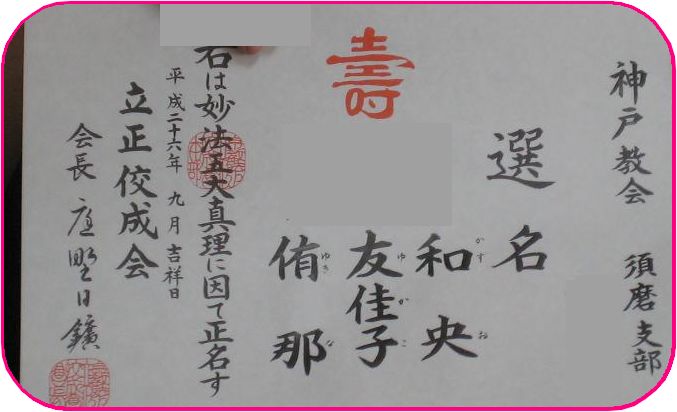 神戸教会 須磨支部
選名
壽
和央
かずお
友佳子
ゆかこ
侑那
ゆきな
右は妙法五大真理に因て正名す
平成二十六年 九月 吉祥日
立正佼成会
会長 庭野日鑛